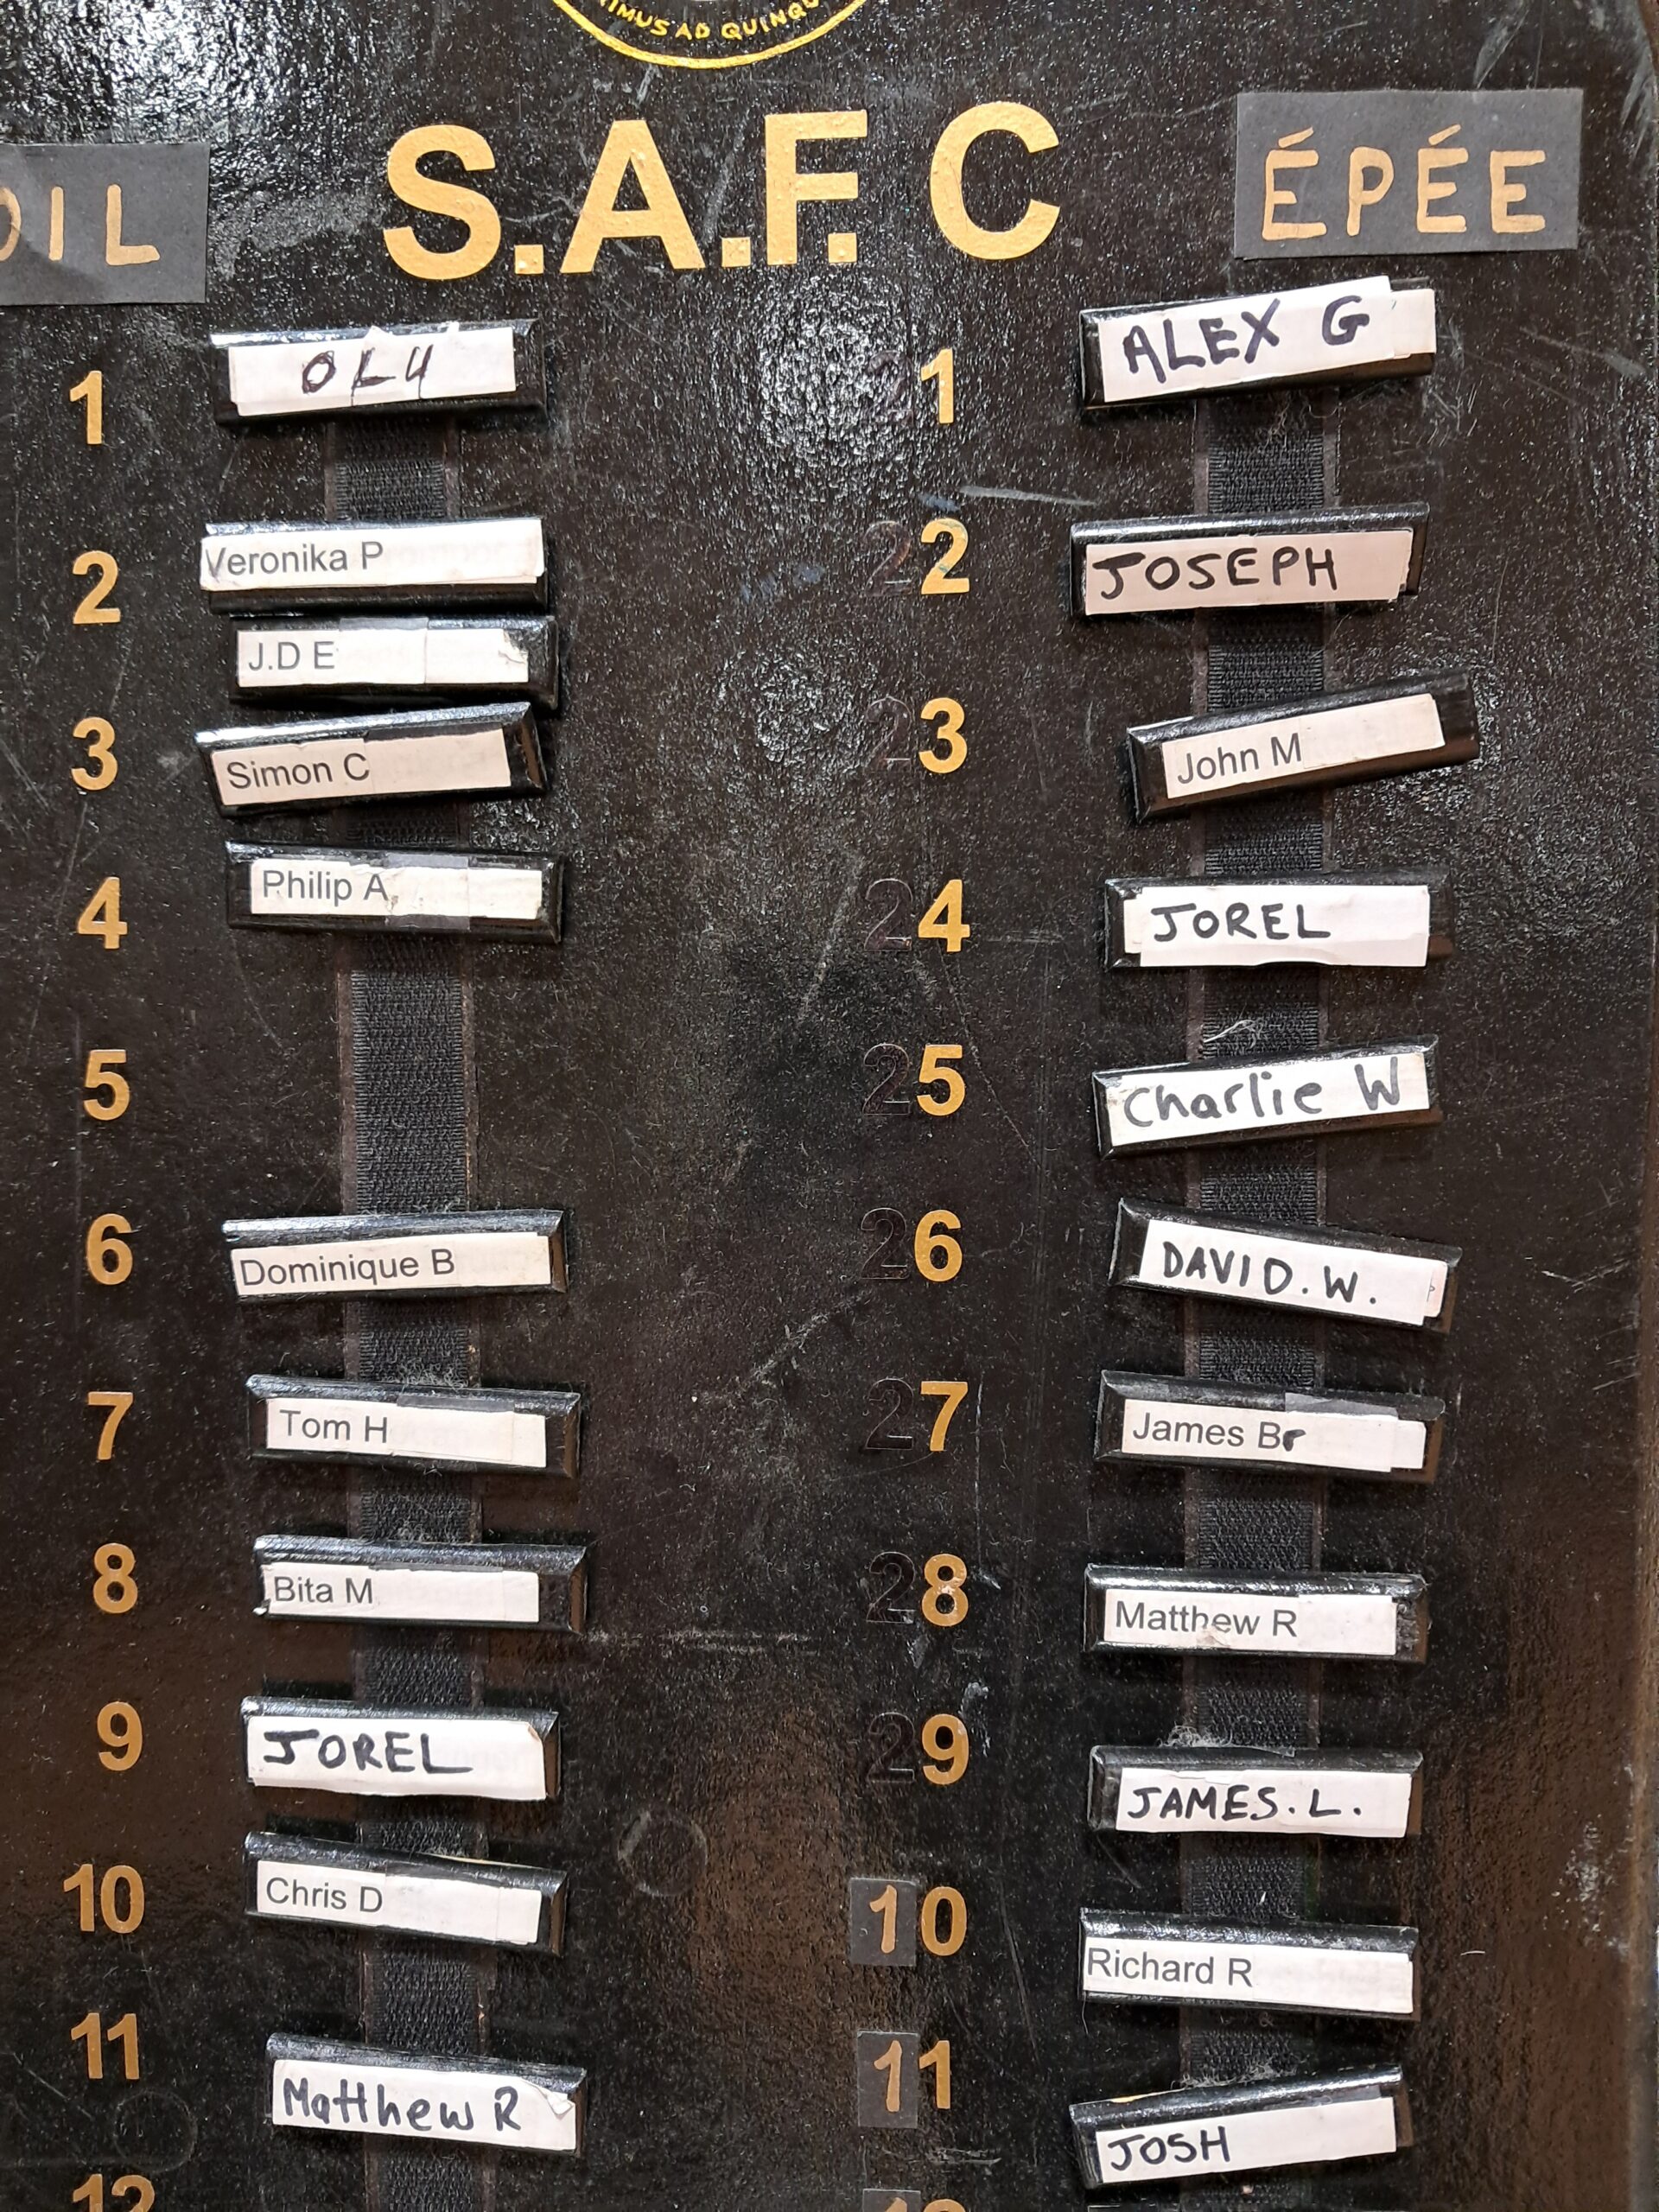 IMUS AD QUINQU
S.A.F.C
OIL
ÉPÉE
1 OLU
2 Veronika P
J.D E
3 Simon C
4 Philip A
5
6 Dominique B
7 Tom H
8 Bita M
9 JOREL
10 Chris D
11 Matthew R
12
1 ALEX G
2 JOSEPH
3 John M
4 JOREL
5 Charlie W
6 DAVID.W.
7 James Br
8 Matthew R
9 JAMES.L.
10 Richard R
11 JOSH